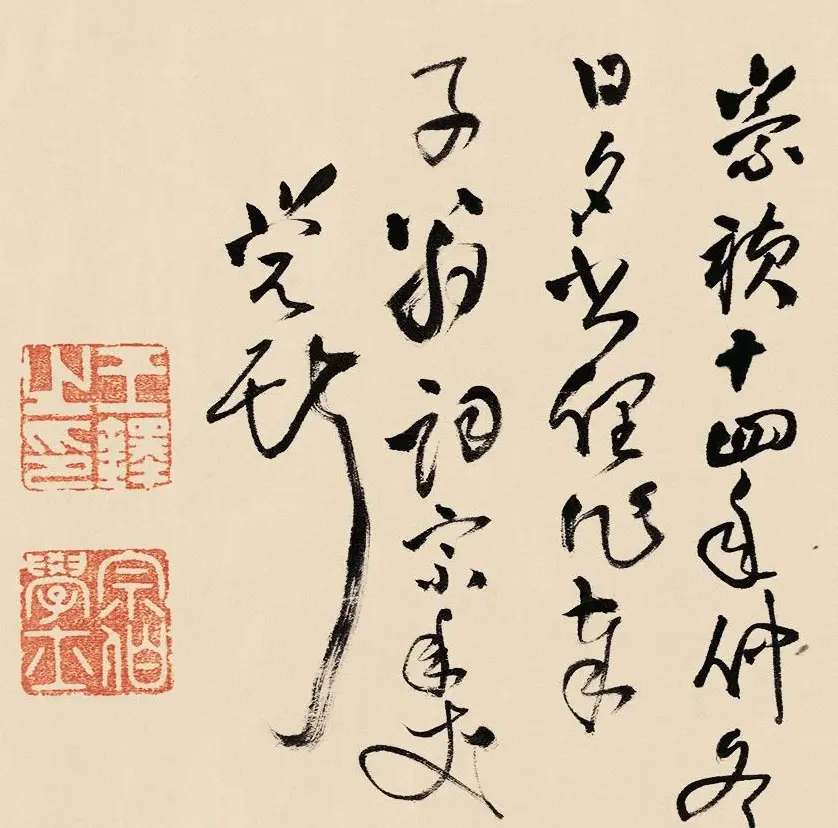 崇禎十四年仲冬
日夕書俚作奉
子翁詞宗年丈
覺斯
王鐸之印
宗伯學士